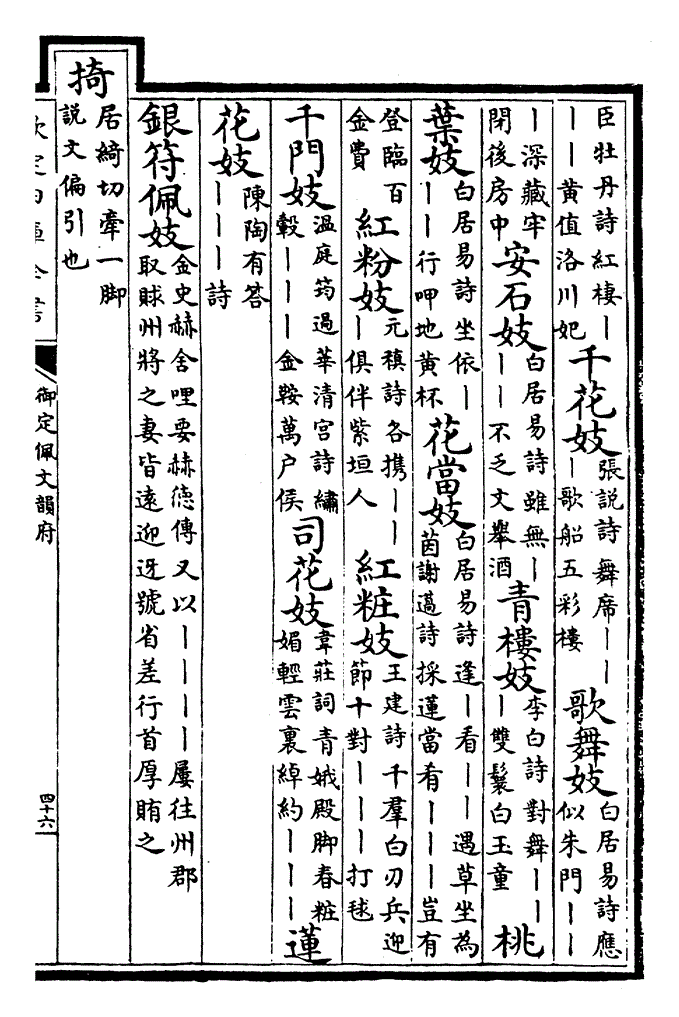 臣牡丹詩紅棲丨丨丨黄值洛川妃千花妓張説詩舞席丨丨丨歌船五彩樓歌舞妓白居易詩應似朱門丨丨
丨深藏牢閉後房中安石妓白居易詩雖無丨丨丨不乏文舉酒青樓妓李白詩對舞丨丨丨雙鬟白玉童桃
葉妓白居易詩坐依丨丨丨行呷地黄杯花當妓白居易詩逢丨看丨丨遇草坐為茵謝邁詩採蓮當肴丨丨丨豈有
登臨百金費紅粉妓元稹詩各携丨丨丨俱伴紫垣人紅粧妓王建詩千羣白刃兵迎節十對丨丨丨打毬
千門妓温庭筠過華清宫詩繡轂丨丨丨金鞍萬户侯司花妓韋莊詞青娥殿脚春粧媚輕雲裏綽約丨丨丨蓮
花妓陳陶有答丨丨丨詩
銀符佩妓金史赫舍哩要赫德傳又以丨丨丨丨屢往州郡取賕州將之妻皆遠迎迓號省差行首厚賄之
掎居綺切牽一脚説文偏引也
欽定四庫全書
御定佩文韻府
四十六